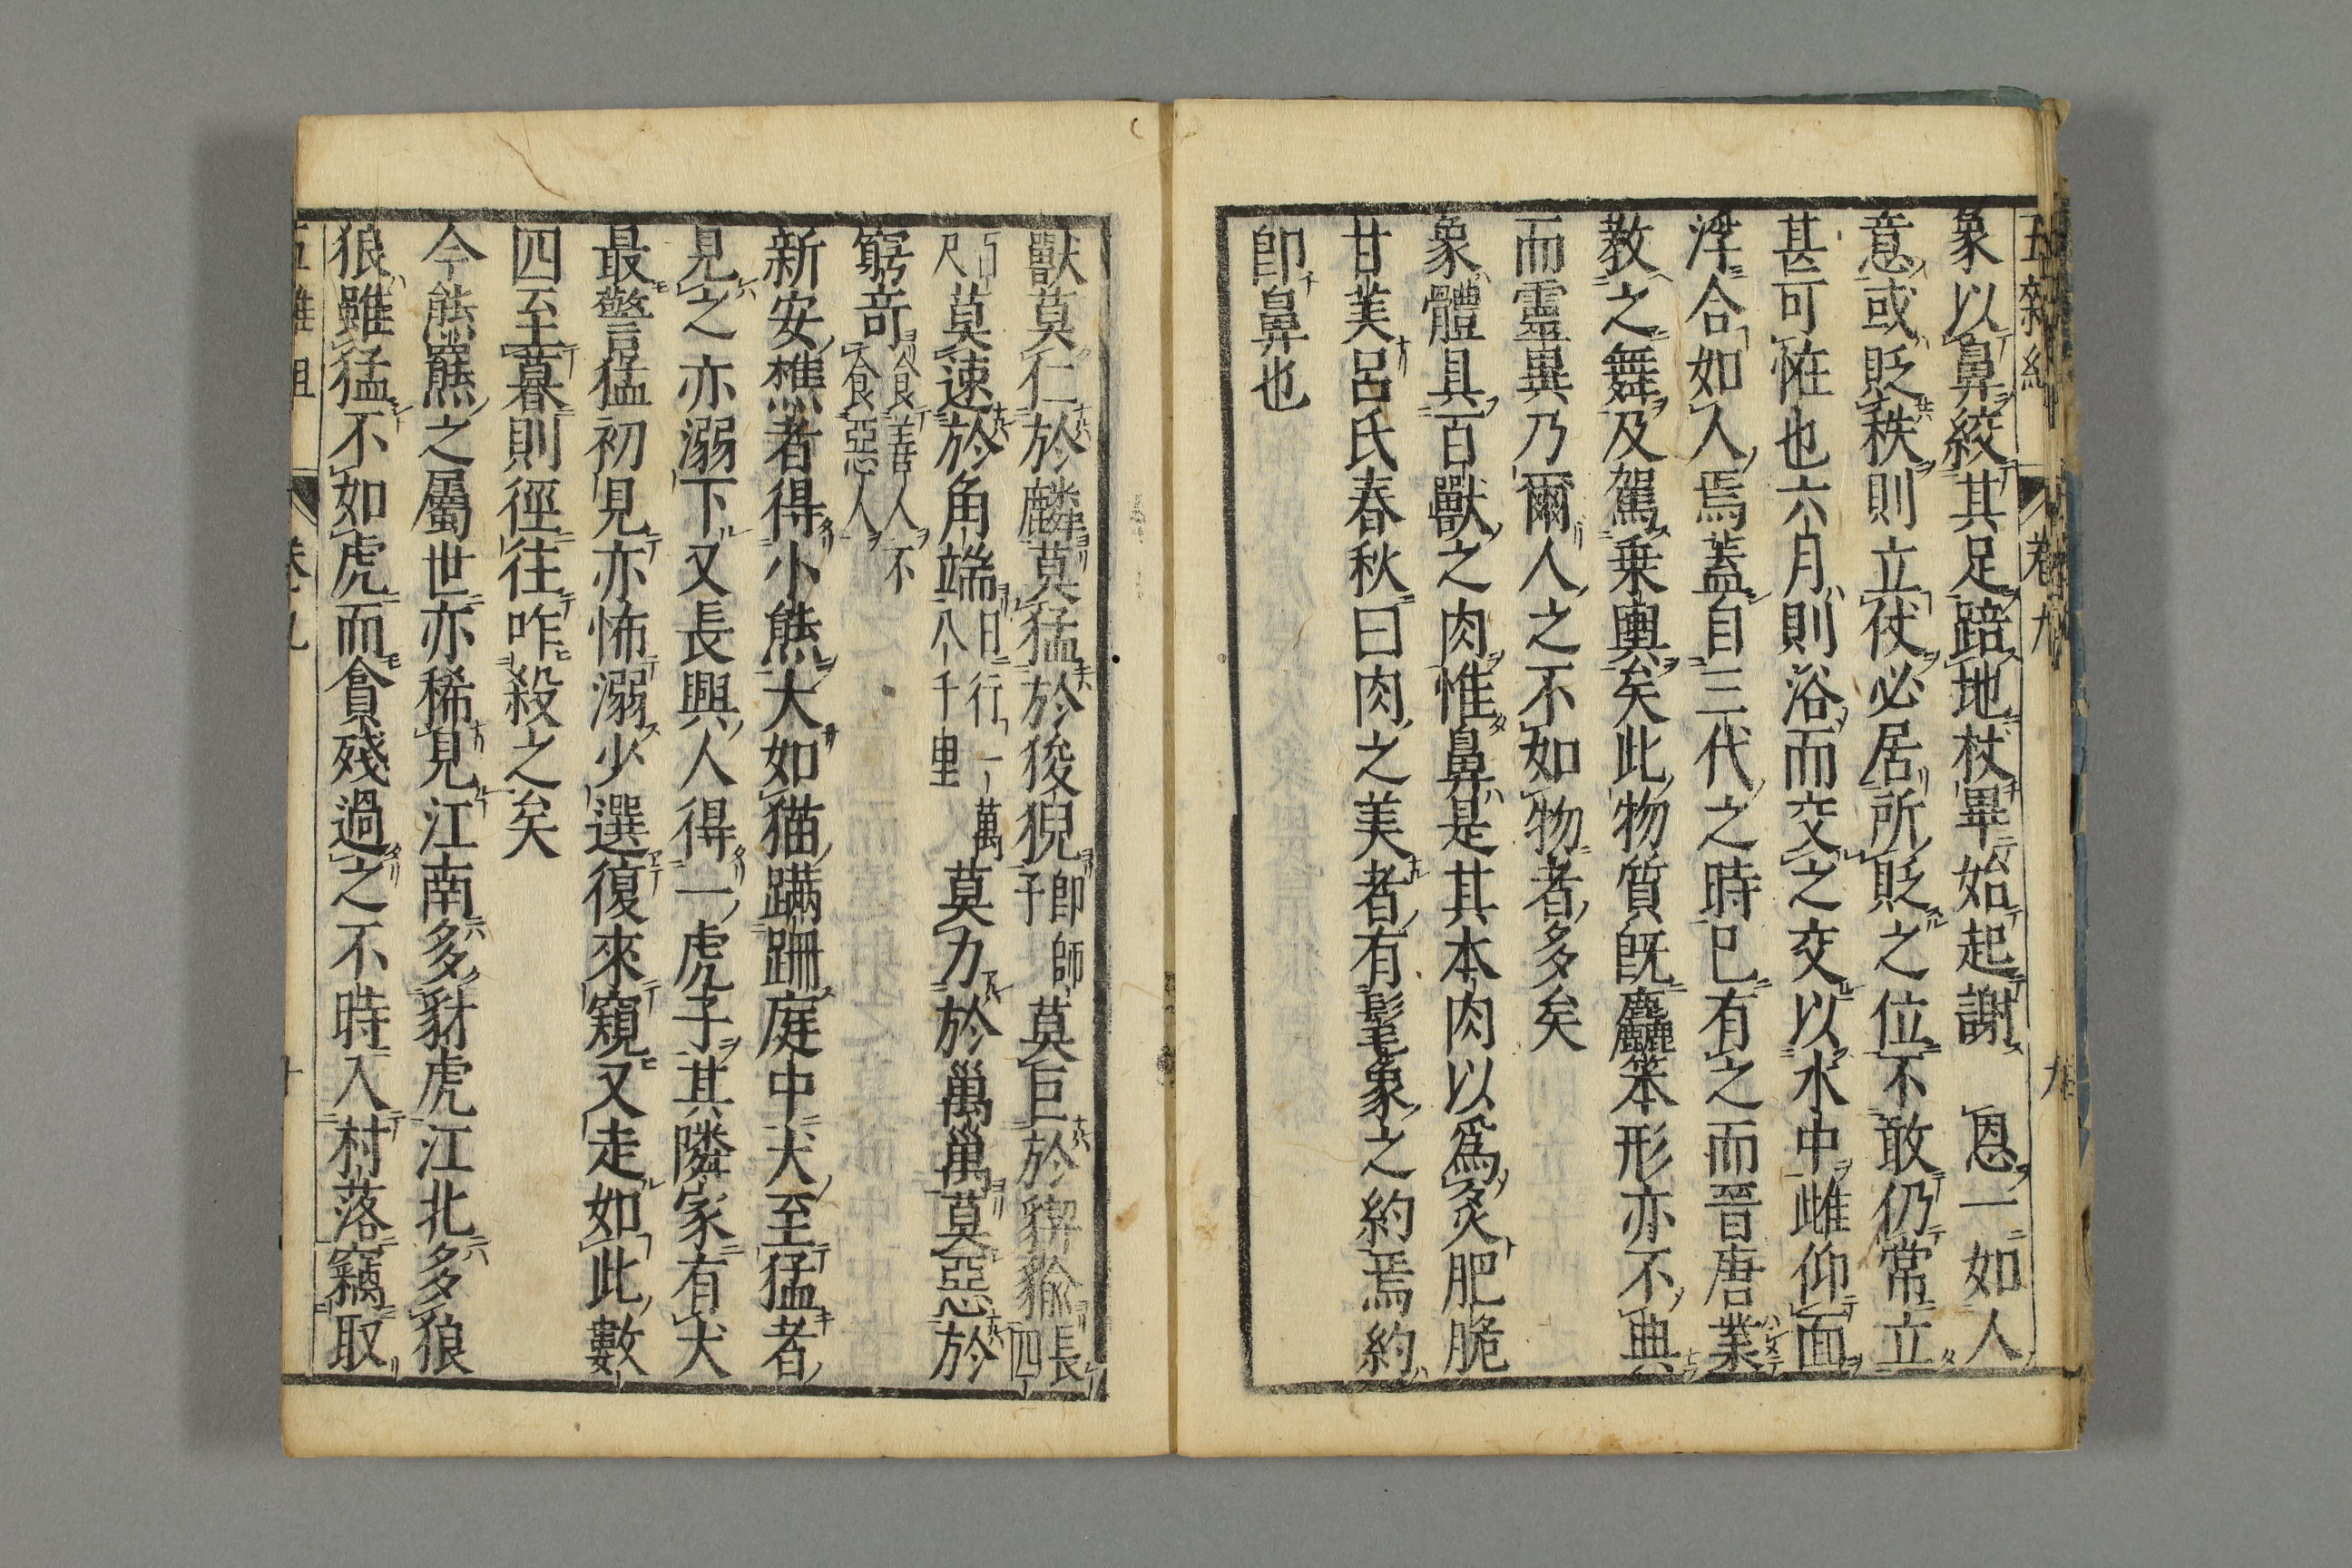 象以鼻絞其足踣地杖畢始起謝 恩一如人
意或貶秩則立仗必居所貶之位不敢仍常立
甚可怪也六月則浴而交之交以水中雌仰面
浮合如人焉蓋自三代之時已有之而晋唐業
教之舞及駕乗輿矣此物質既麤笨形亦不典
而靈異乃爾人之不如物者多矣
象體具百獸之肉惟鼻是其本肉以爲炙肥脆
甘美呂氏春秋曰肉之美者有髦象之約焉約
即鼻也
獸莫仁於麟莫猛於狻猊即師子莫巨於貏貐長四
百尺莫速於角端日行一萬八千里莫力於䍺䍺莫惡於
窮奇食善人不食惡人
新安樵者得小熊大如猫蹣跚庭中犬至猛者
見之亦溺下又長興人得一虎子其隣家有犬
最警猛初見亦怖溺少選復來窺又走如此數
四至暮則徑往咋殺之矣
今熊羆之屬世亦稀見江南多豺虎江北多狼
狼雖猛不如虎而貪殘過之不時入村落竊取
五雜俎 卷九 十